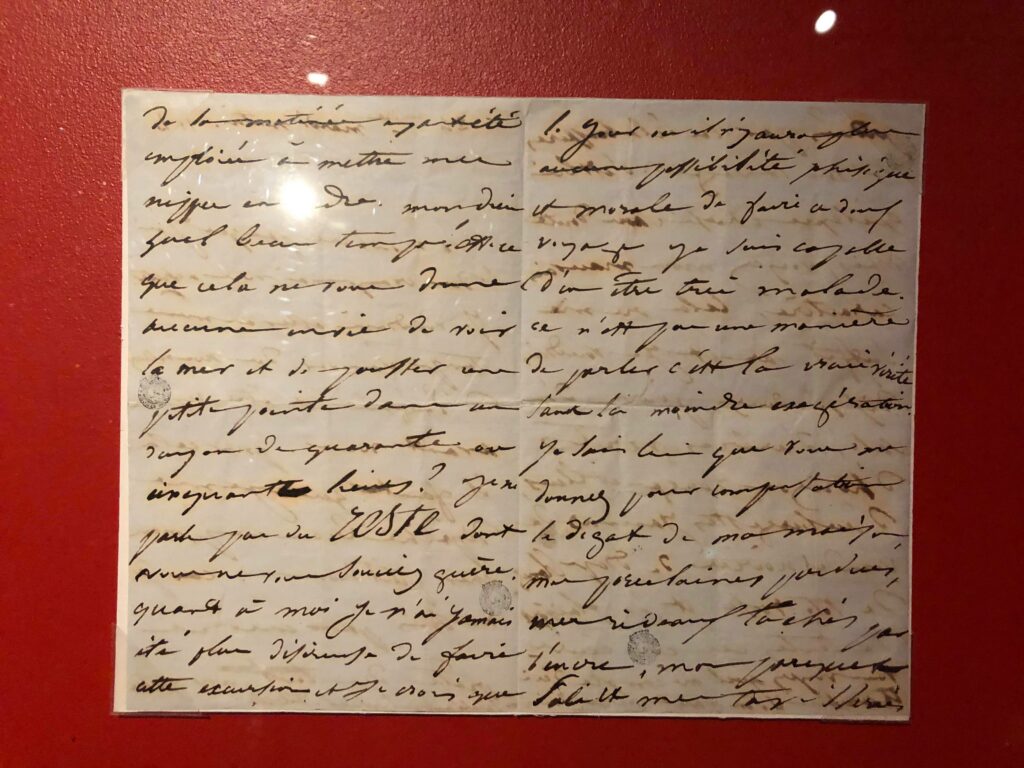 de la matinée ayant été
emploiée à mettre mes
nippes en ordre. mon dieu
quel beau temps! est-ce
que cela ne vous donne
aucune envie de voir
la mer et de pousser une
petite pointe dans un
rayon de quarante ou
cinquante lieues? je ne
parle pas du RESTE dont
vous ne vous souciez guère.
quant à moi je n'ai jamais
été plus désireuse de faire
cette excursion et je crois que
le jour ou il n'y aura plus
aucune possibilité phisique
et morale de faire ce doux
voyage je suis capable
d'en être très malade.
ce n'est pas une manière
de parler c'est la vraie vérité
sans la moindre exagération.
je sais bien que vous me
donnez pour compensation
le dégat de ma maison,
mes porcelaines perdues,
mes rideaux tachés par
l'encre, mes parquets
salis et mes tapis